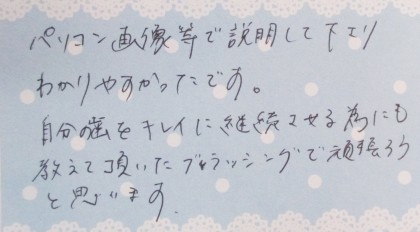 パソコン画像等で説明して下エリ
わかりやすかったです。
自分の歯をキレイに継続させる為にも
教えて頂いたブラッシングで頑張ろう
と思います